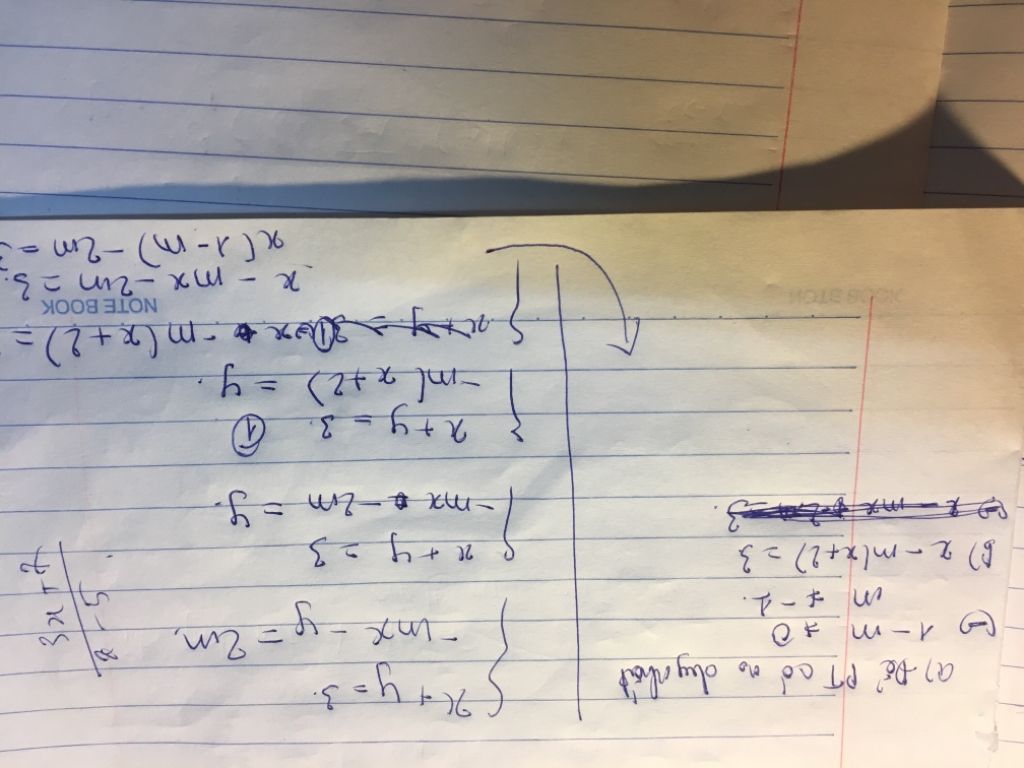 a) Để PT có no duy nhất
⇔ 1 - m ≠ 0
m ≠ -1.
b) x - m(x+2) = 3
x + y = 3.
-mx - y = 2m.
x + y = 3
-mx - 2m = y.
x + y = 3. ①
-m(x+2) = y.
x + y = 3 ① x - m(x+2) =
x - mx - 2m = 3.
x(1-m) - 2m = 3
x-5
3x+7
NOTE BOOK